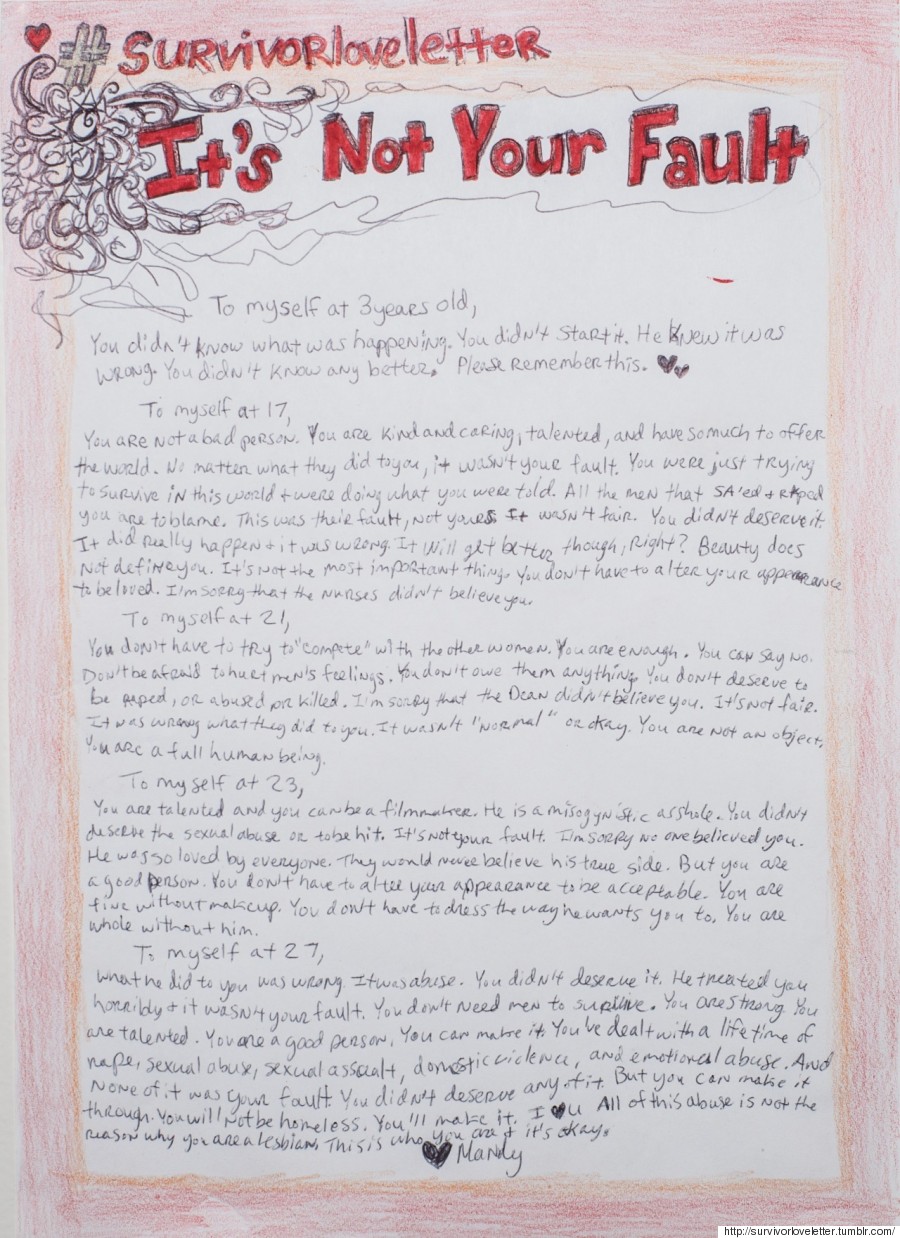 #SURVIVORloveletter
It's Not Your Fault
To myself at 3 years old,
You didn't know what was happening. You didn't start it. He knew it was
wrong. You didn't know any better. Please remember this.
To myself at 17,
You are not a bad person. You are kind and caring, talented, and have so much to offer
the world. No matter what they did to you, it wasn't your fault. You were just trying
to survive in this world + were doing what you were told. All the men that SA'ed + raped
you are to blame. This was their fault, not yours. It wasn't fair. You didn't deserve it.
It did really happen + it was wrong. It will get better though, right? Beauty does
not define you. It's not the most important thing. You don't have to alter your appearance
to be loved. I'm sorry that the nurses didn't believe you.
To myself at 21,
You don't have to try to "compete" with the other women. You are enough. You can say no.
Don't be afraid to hurt men's feelings. You don't owe them anything. You don't deserve to
be raped, or abused or killed. I'm sorry that the Dean didn't believe you. It's not fair.
It was wrong what they did to you. It wasn't "normal" or okay. You are not an object.
You are a full human being.
To myself at 23,
You are talented and you can be a filmmaker. He is a misogynistic asshole. You didn't
deserve the sexual abuse or to be hit. It's not your fault. I'm sorry no one believed you.
He was so loved by everyone. They would never believe his true side. But you are
a good person. You don't have to alter your appearance to be acceptable. You are
fine without makeup. You don't have to dress the way he wants you to. You are
whole without him.
To myself at 27,
What he did to you was wrong. It was abuse. You didn't deserve it. He treated you
horribly + it wasn't your fault. You don't need men to survive. You are strong. You
are talented. You are a good person. You can make it. You've dealt with a lifetime of
rape, sexual abuse, sexual assault, domestic violence, and emotional abuse. And
none of it was your fault. You didn't deserve any of it. But you can make it
through. You will not be homeless. You'll make it. I ♥ u All of this abuse is not the
reason why you are a lesbian. This is who you are + it's okay.
♥ Mandy
http://survivorloveletter.tumblr.com/